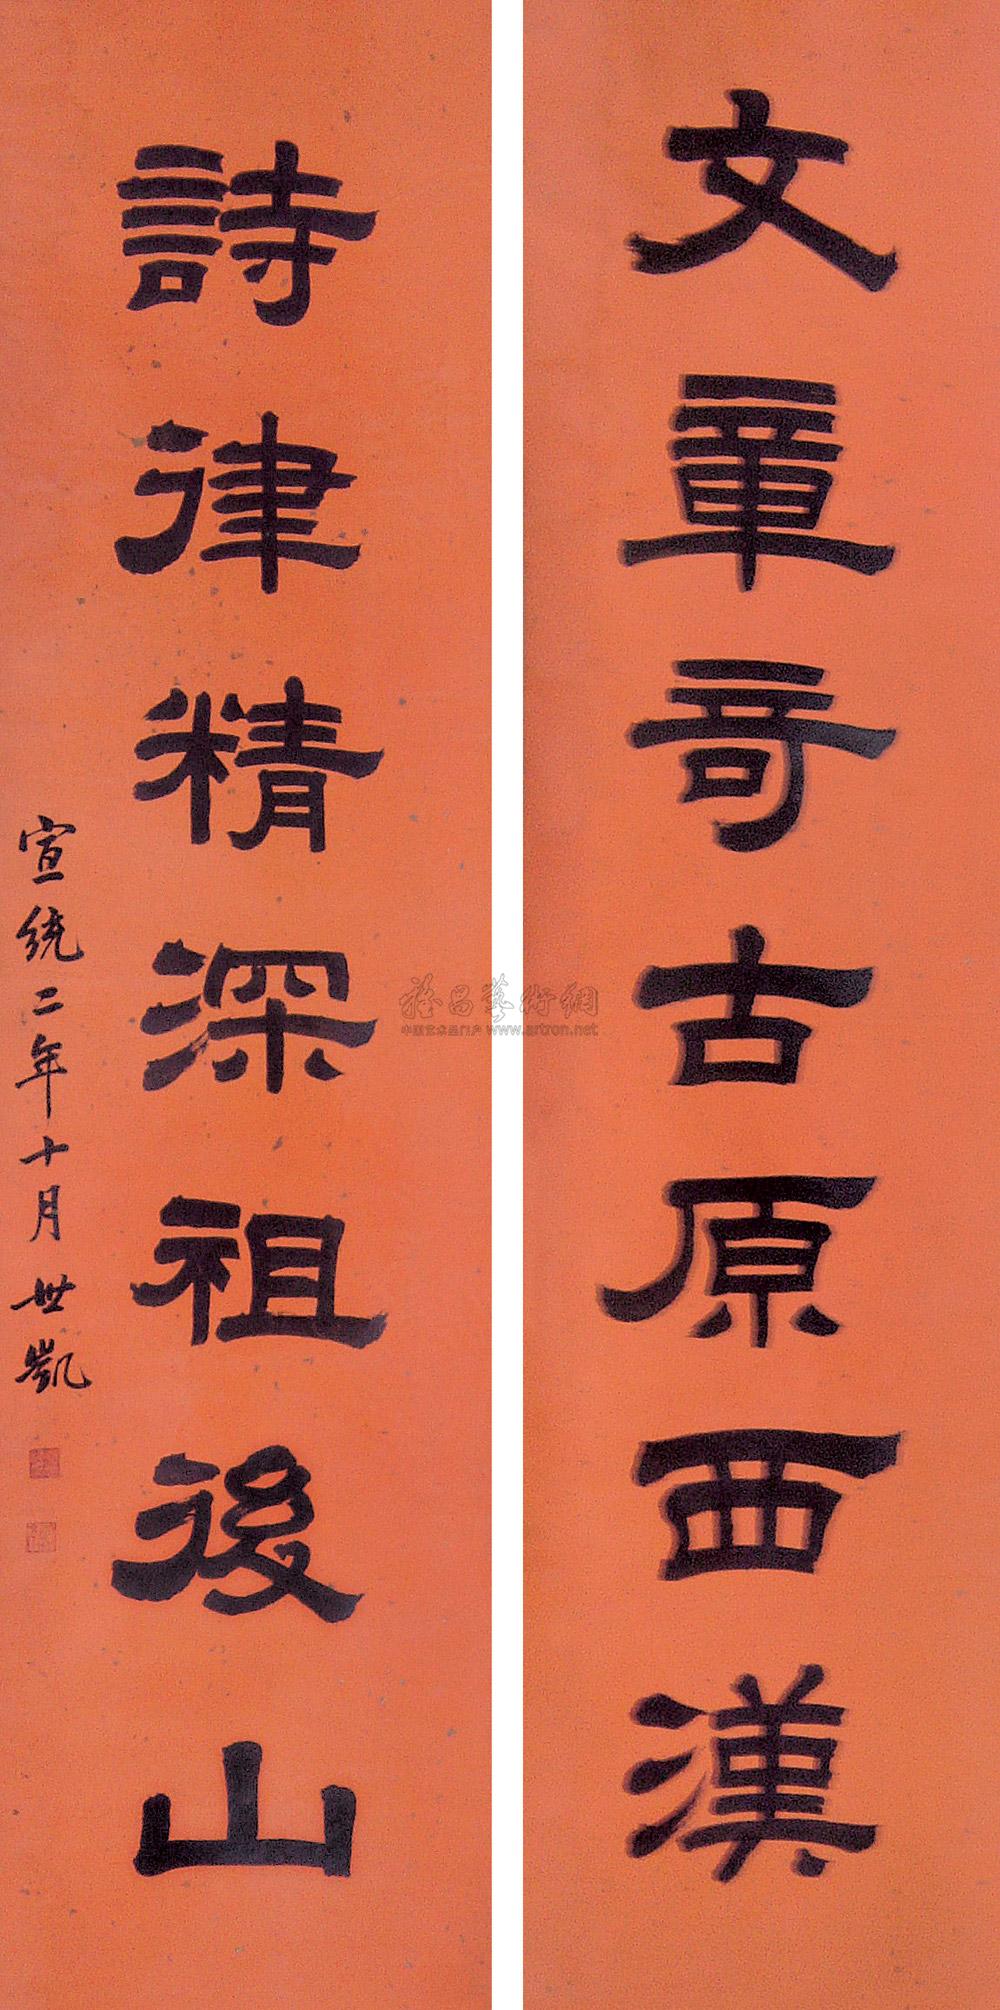 文章奇古原西漢
詩律精深祖後山
宣統二年十月世凱
雅昌藝術網
中国艺术品门户 www.artron.net